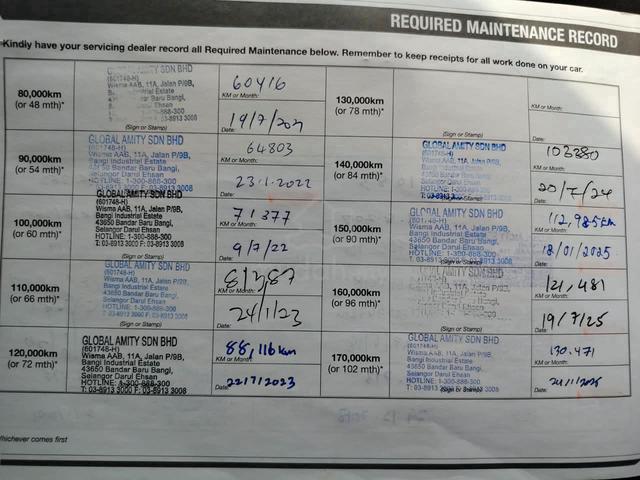 REQUIRED MAINTENANCE RECORD
Kindly have your servicing dealer record all Required Maintenance below. Remember to keep receipts for all work done on your car.
80,000km
(or 48 mth)*
AMITY SDN BHD
(601748-H)
Wisma AAB, 11A, Jalan P/9B,
Bangi Industrial Estate
Bandar Baru Bangi,
Ehsan
(Sign or Stamp)
60416
KM or Month:
Date:
90,000km
(or 54 mth)*
GLOBAL AMITY SDN BHD
(601748-H)
Wisma AAB, 11A, Jalan P/9B,
Bangi Industrial Estate
43650 Bandar Baru Bangi,
Selangor Darul Ehsan
HOTLINE: 1-300-888-300
T: 03-8913 3000 F: 03-8913 3008
64803
KM or Month:
23.1.2022
Date:
100,000km
(or 60 mth)*
GLOBAL AMITY SDN BHD
(601748-H)
Wisma AAB, 11A, Jalan P/9B,
Bangi Industrial Estate
43650 Bandar Baru Bangi,
Selangor Darul Ehsan
HOTLINE: 1-300-888-300
T: 03-8913 3000 F: 03-8913 3008
71377
KM or Month:
9/7/22
Date:
110,000km
(or 66 mth)*
GLOBAL AMITY SDN BHD
(601748-H)
Wisma AAB, 11A, Jalan P/9B,
Bangi Industrial Estate
43650 Bandar Baru Bangi,
Selangor Darul Ehsan
HOTLINE: 1-300-888-300
T: 03-8913 3000 F: 03-8913 3008
(Sign or Stamp)
KM or Month:
24/1/23
Date:
120,000km
(or 72 mth)*
GLOBAL AMITY SDN BHD
(601748-H)
Wisma AAB, 11A, Jalan P/9B,
Bangi Industrial Estate
43650 Bandar Baru Bangi,
Selangor Darul Ehsan
HOTLINE: 1-300-888-300
T: 03-8913 3000 F: 03-8913 3008
88,116km
KM or Month:
22/7/2023
Date:
130,000km
(or 78 mth)*
(Sign or Stamp)
KM or Month:
Date:
140,000km
(or 84 mth)*
GLOBAL AMITY SDN BHD
(601748-H)
Wisma AAB, 11A, Jalan P/9B,
Bangi Industrial Estate
43650 Bandar Baru Bangi,
Selangor Darul Ehsan
(Sign or Stamp)
103280
KM or Month:
20/7/24
Date:
150,000km
(or 90 mth)*
GLOBAL AMITY SDN BHD
Wisma AAB, 11A, Jalan P/9B,
Bangi Industrial Estate
43650 Bandar Baru Bangi,
Selangor Darul Ehsan
HOTLINE: 1-300-888-300
112,985km
KM or Month:
18/01/2025
Date:
160,000km
(or 96 mth)*
AMITY SDN BHD
(Sign or Stamp)
121,481
KM or Month:
19/7/25
Date:
170,000km
(or 102 mth)*
GLOBAL AMITY SDN BHD
(601748-H)
Wisma AAB, 11A, Jalan P/9B,
Bangi Industrial Estate
43650 Bandar Baru Bangi,
Selangor Darul Ehsan
HOTLINE: 1-300-888-300
T: 03-8913 3000 F: 03-8913 3008
130.471
KM or Month:
Date:
Whichever comes first